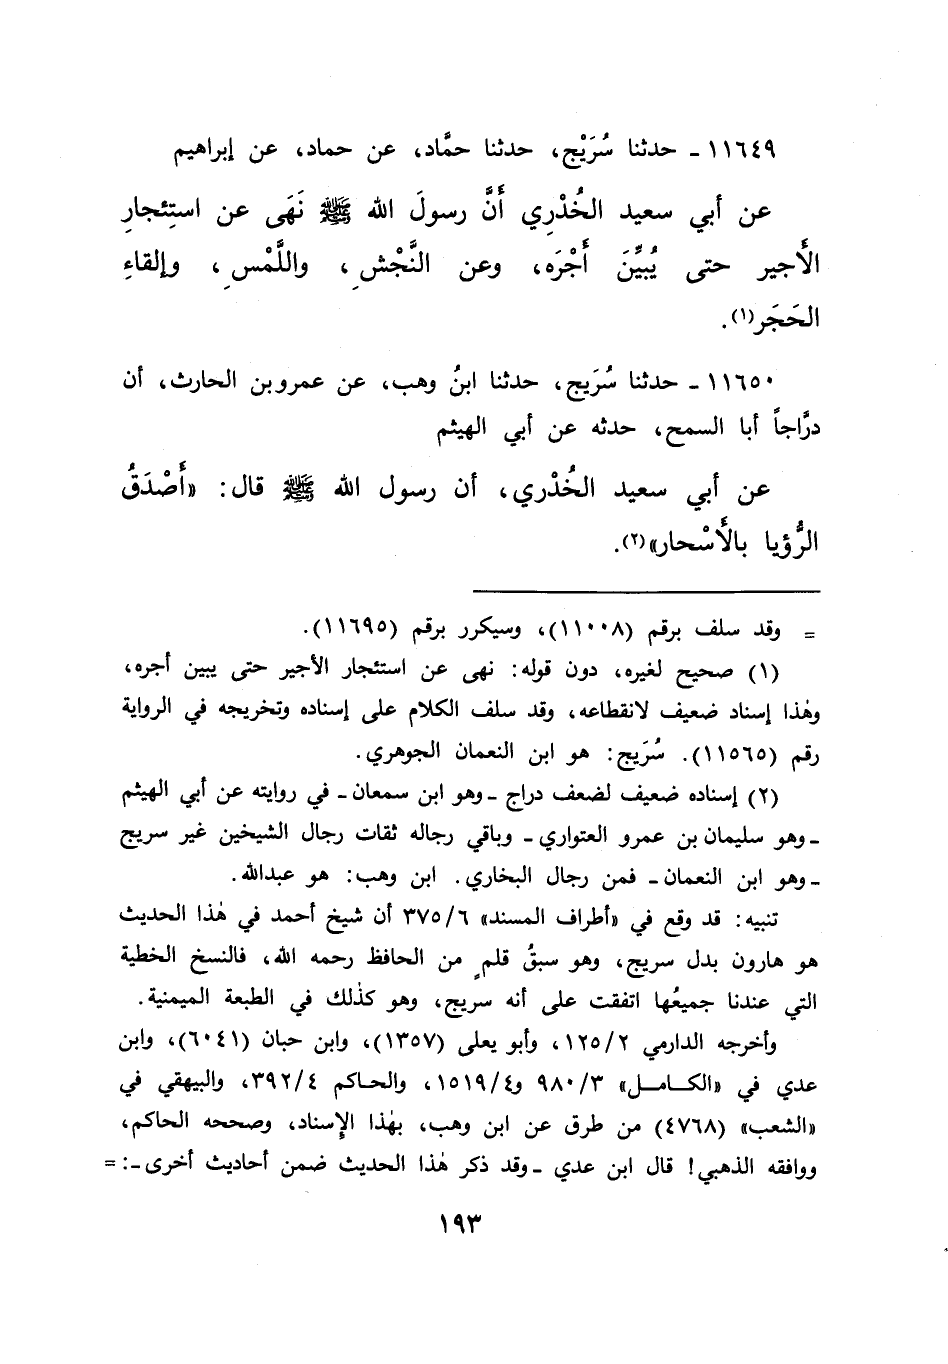 ١١٦٤٩ ـ حدثنا سُرَيْج، حدثنا حمَّاد، عن حماد، عن إبراهيم
عن أبي سعيد الخُدْرِي أَنَّ رسولَ الله ﷺ نَهَى عن استِئجارِ
الأَجير حتى يُبيِّنَ أَجْرَه، وعن النَّجْشِ، واللَّمْسِ، وإلقاءِ
الحَجَر(١).
١١٦٥٠ ـ حدثنا سُرَيج، حدثنا ابنُ وهب، عن عمرو بن الحارث، أن
درَّاجاً أبا السمح، حدثه عن أبي الهيثم
عن أبي سعيد الخُدْري، أن رسول الله ﷺ قال: «أَصْدَقُ
الرُّؤيا بالأَسْحار»(٢).
= وقد سلف برقم (١١٠٠٨)، وسيكرر برقم (١١٦٩٥).
(١) صحيح لغيره، دون قوله: نهى عن استئجار الأجير حتى يبين أجره،
وهٰذا إسناد ضعيف لانقطاعه، وقد سلف الكلام على إسناده وتخريجه في الرواية
رقم (١١٥٦٥). سُرَيج: هو ابن النعمان الجوهري.
(٢) إسناده ضعيف لضعف دراج ـ وهو ابن سمعان ـ في روايته عن أبي الهيثم
ـ وهو سليمان بن عمرو العتواري ـ وباقي رجاله ثقات رجال الشيخين غير سريج
ـ وهو ابن النعمان ـ فمن رجال البخاري. ابن وهب: هو عبدالله.
تنبيه: قد وقع في «أطراف المسند» ٣٧٥/٦ أن شيخ أحمد في هٰذا الحديث
هو هارون بدل سريج، وهو سبقُ قلمٍ من الحافظ رحمه الله، فالنسخ الخطية
التي عندنا جميعُها اتفقت على أنه سريج، وهو كذٰلك في الطبعة الميمنية.
وأخرجه الدارمي ١٢٥/٢، وأبو يعلى (١٣٥٧)، وابن حبان (٦٠٤١)، وابن
عدي في «الكامل» ٩٨٠/٣ و١٥١٩/٤، والحاكم ٣٩٢/٤، والبيهقي في
«الشعب» (٤٧٦٨) من طرق عن ابن وهب، بهٰذا الإسناد، وصححه الحاكم،
ووافقه الذهبي! قال ابن عدي ـ وقد ذكر هٰذا الحديث ضمن أحاديث أخرى ـ: =
١٩٣